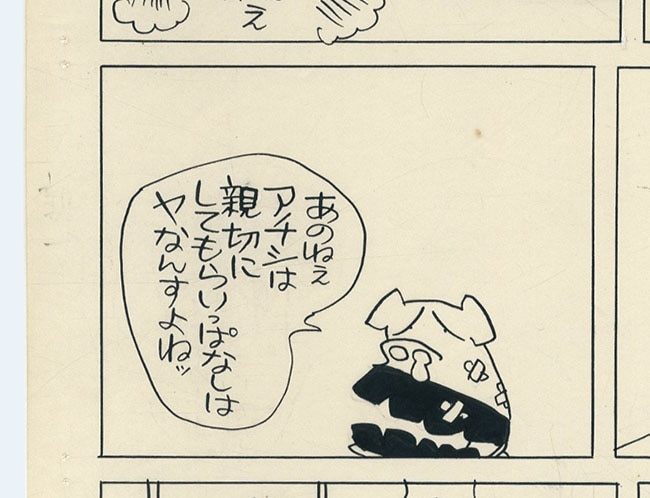 ぇ
あのねぇ
アチシは
親切に
してもらいっぱなしは
ヤなんすよねッ